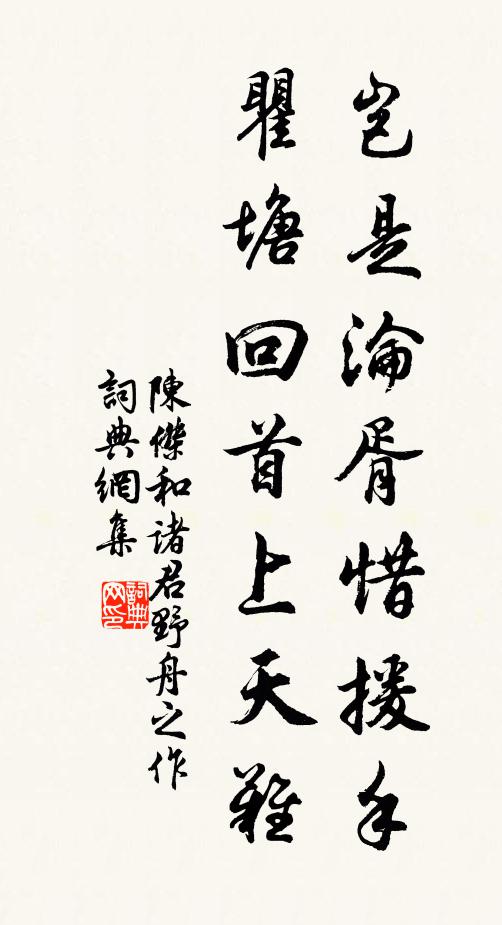 豈是淪胥惜援手
瞿塘回首上天難
陳傑和諸君野舟之作
詞典網集
詞典网印